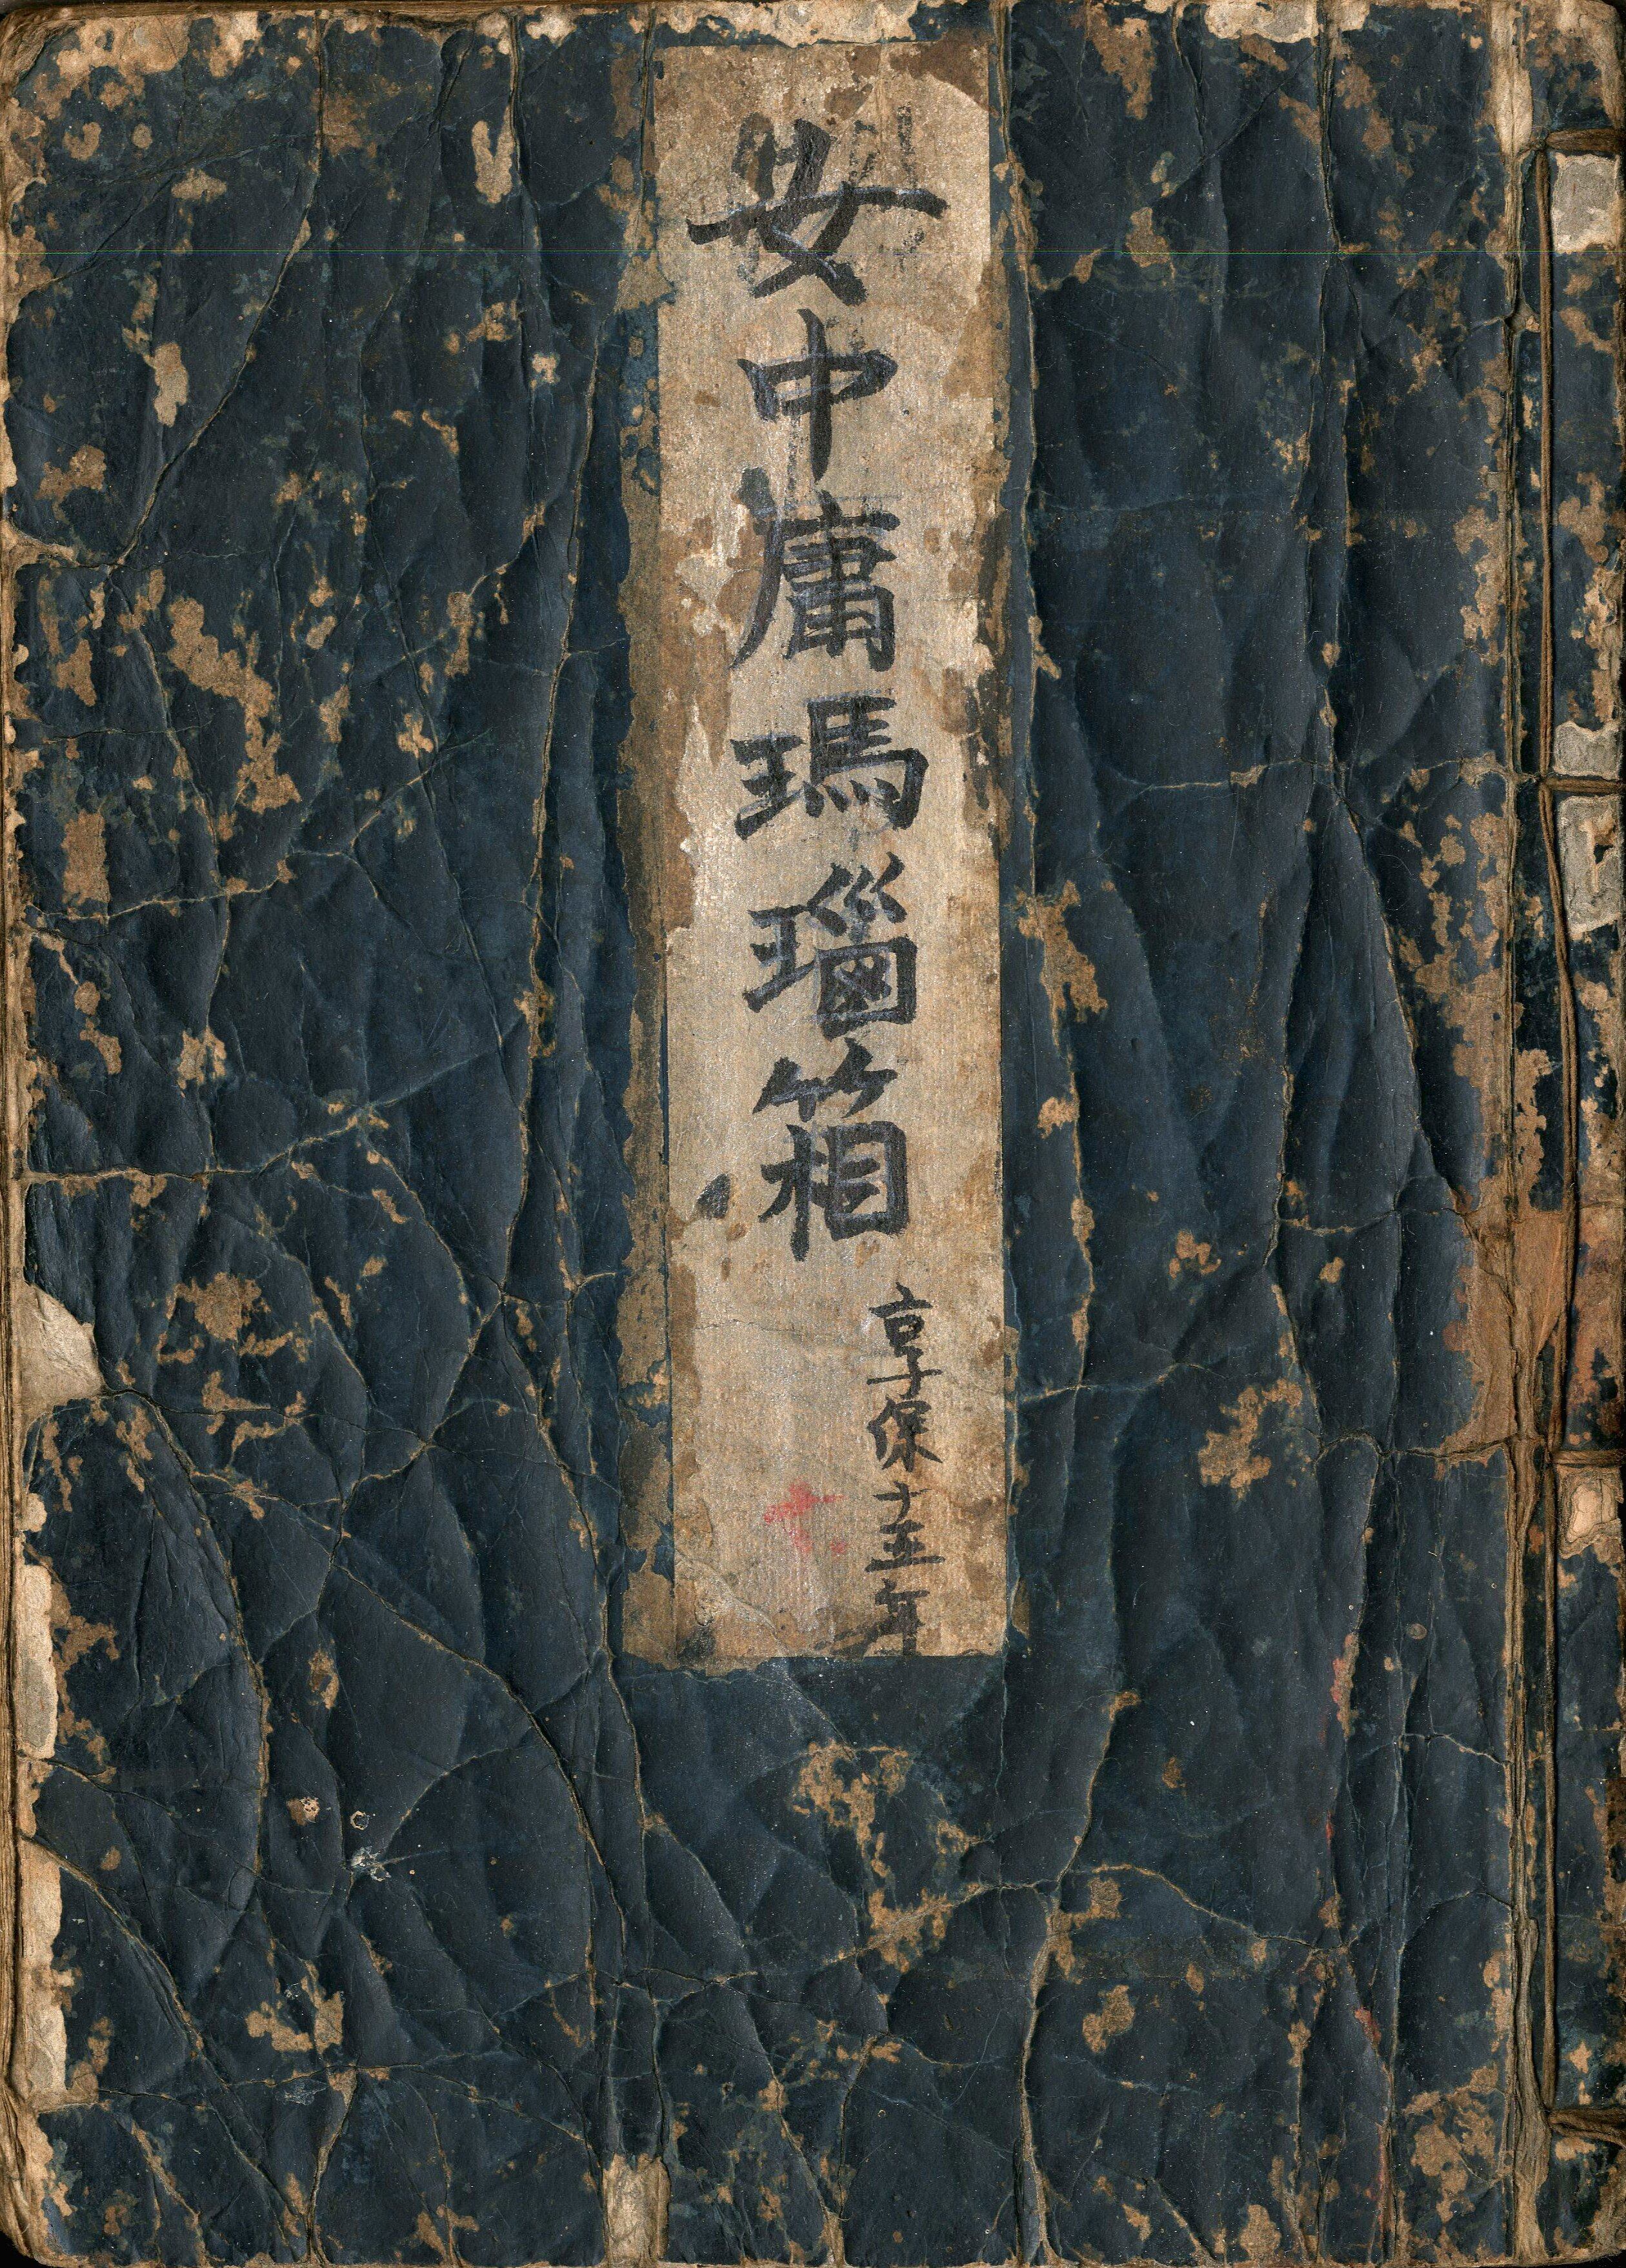 女中庸瑪瑙箱
享保十五年